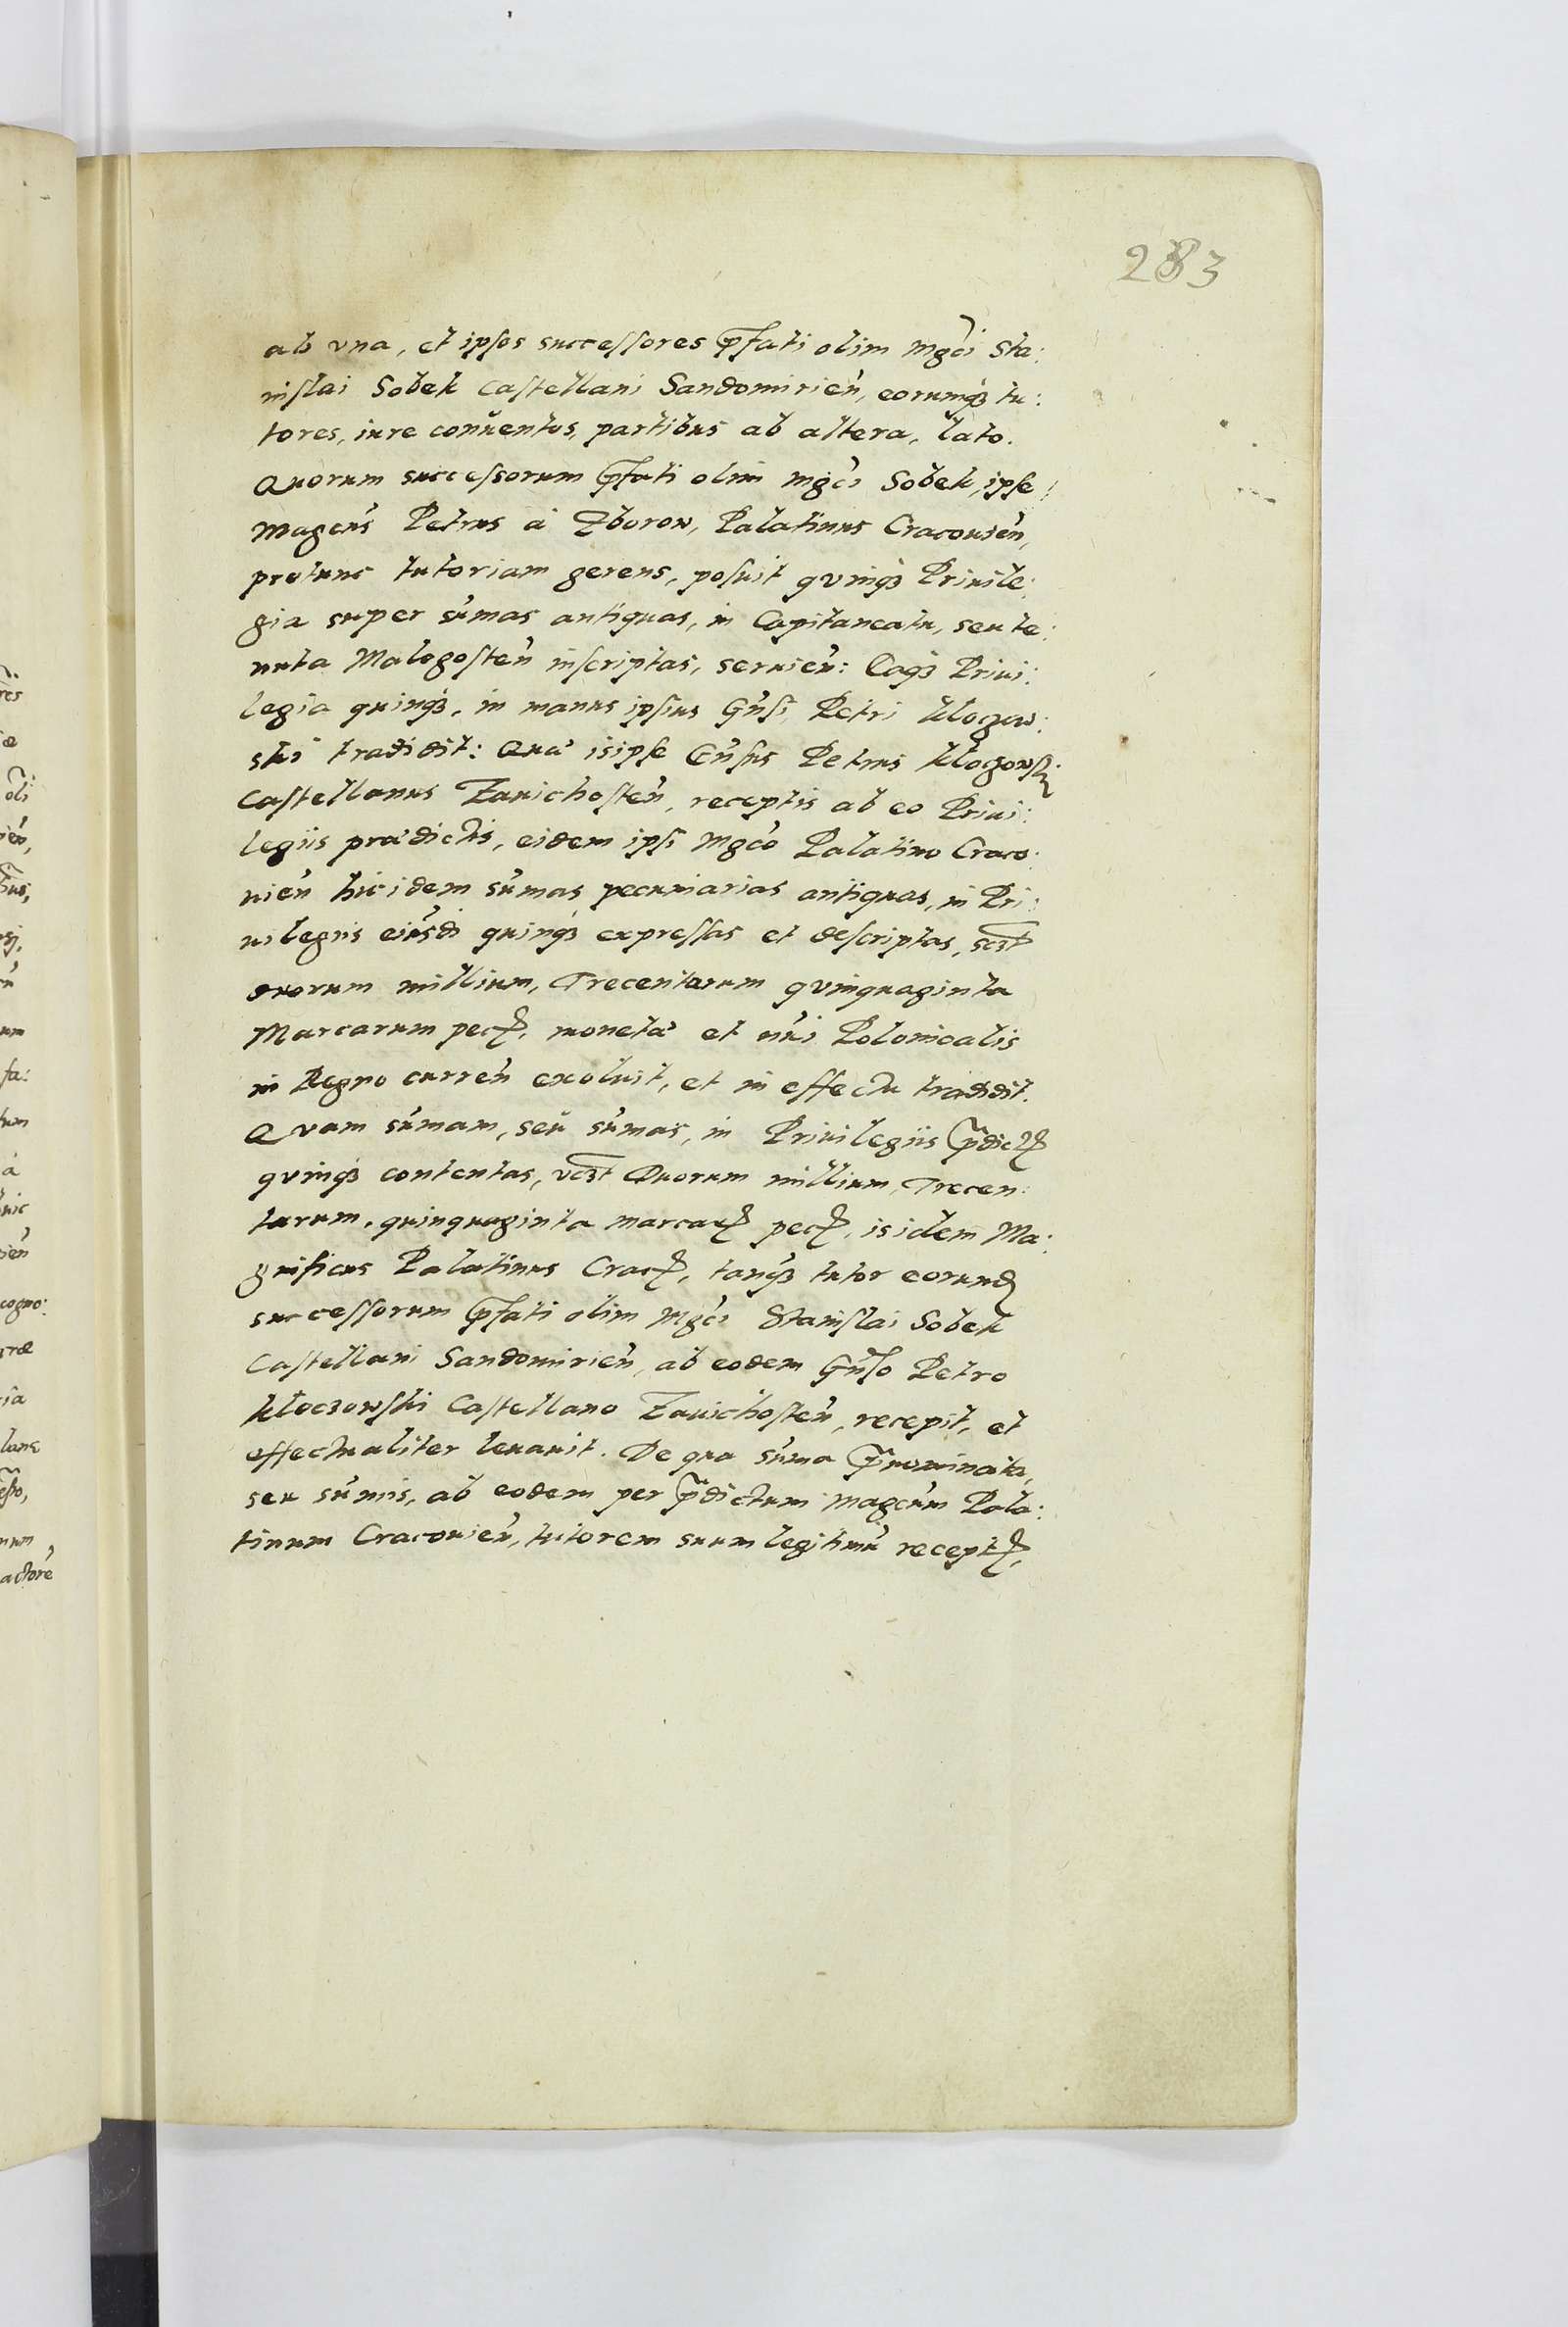 283
ab vna, et ipsos successores p̄fati olim Mgci Sta:
nislai Sobek Castellani Sandomirien̄, eorumq́ʒ tu:
tores, iure conuentos, partibus ab altera, lato.
Quorum successorum p̄fati olim Mgci Sobek, ipse
Magcus Petrus à Zborow, Palatinus Cracouien̄,
protunc tutoriam gerens, posuit qvinqʒ Priuile:
gia super sum̄as antiquas, in Capitaneatu, seu te:
nuta Malogosten̄ inscriptas, seruien̄: Eaqʒ Priui:
legia quinqʒ, in manus ipsius Gn̄si Petri Kloczow:
ski tradidit: Quæ isipse Gn̄sus Petrus Kloczowski
Castellanus Zauichosten̄, receptis ab eo Priui:
legiis prædictis, eidem ipsi Mgco Palatino Craco:
uien̄ hic idem sum̄as pecuniarias antiquas, in Pri:
uilegiis eiusdi quinqʒ expressas et descriptas, sczt
duorum millium, Trecentarum qvinquaginta
Marcarum pecꝝ, monetæ et nu̅i Polonicalis
in Regno curren̄ exoluit, et in effectu tradidit.
Qvam sum̄am, seu sum̄as, in Priuilegiis p̄dictꝭ
qvinqʒ contentas, vczt Duorum millium, Trecen:
tarum, quinquaginta marcaꝝ pecꝝ, isidem Ma:
gnificus Palatinus Cracꝭ, tanqʒ tutor eorund̄
successorum p̄fati olim Mgci Stanislai Sobek
Castellani Sandomirien̄, ab eodem Gn̄so Petro
Kloczowski Castellano Zauichosten̄, recepit, et
effectualiter leuauit. De qua sum̄a p̄nominata,
seu sum̄is, ab eodem per p̄dictum Magcum Pala:
tinum Cracouien̄, tutorem suum legitimū receptꝭ,